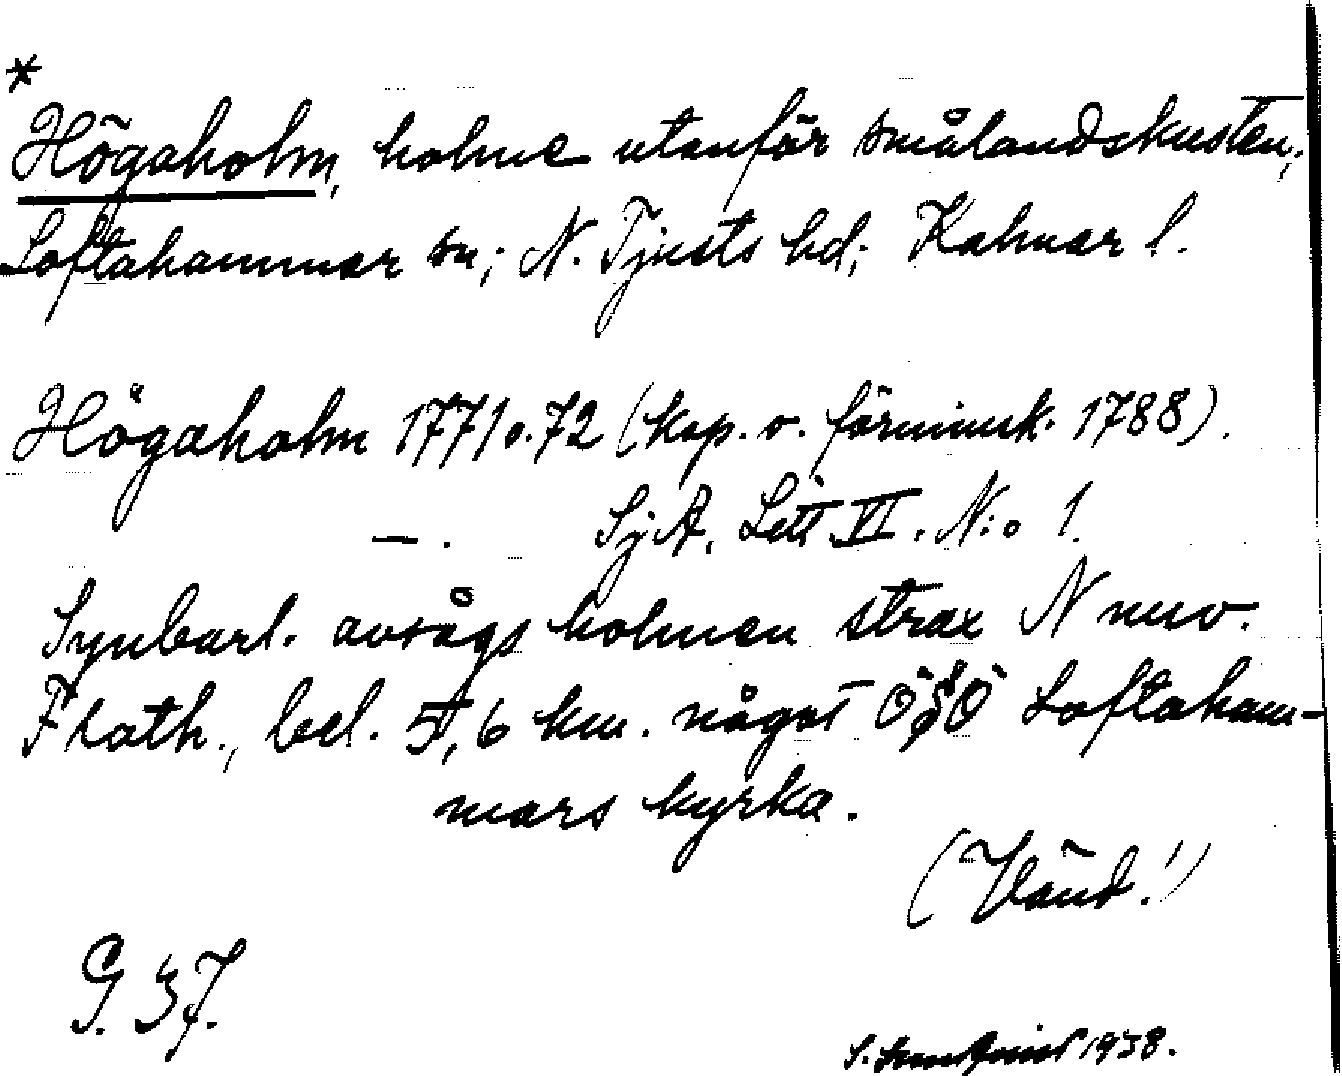 *
Högaholm, holme utanför smålandskusten,
Loftahammar sn; N. Tjusts hd; Kalmar l.
Högaholm 1771 o. 72 (kop. o. förminsk. 1788).
—. SjA, Litt VI. N:o 1.
Synbarl. avsågs holmen strax N nuv.
F hath., bel. 5,6 km. något ÖSÖ Loftaham-
mars kyrka.
(Vänd!)
G. 37.
S. 1938.